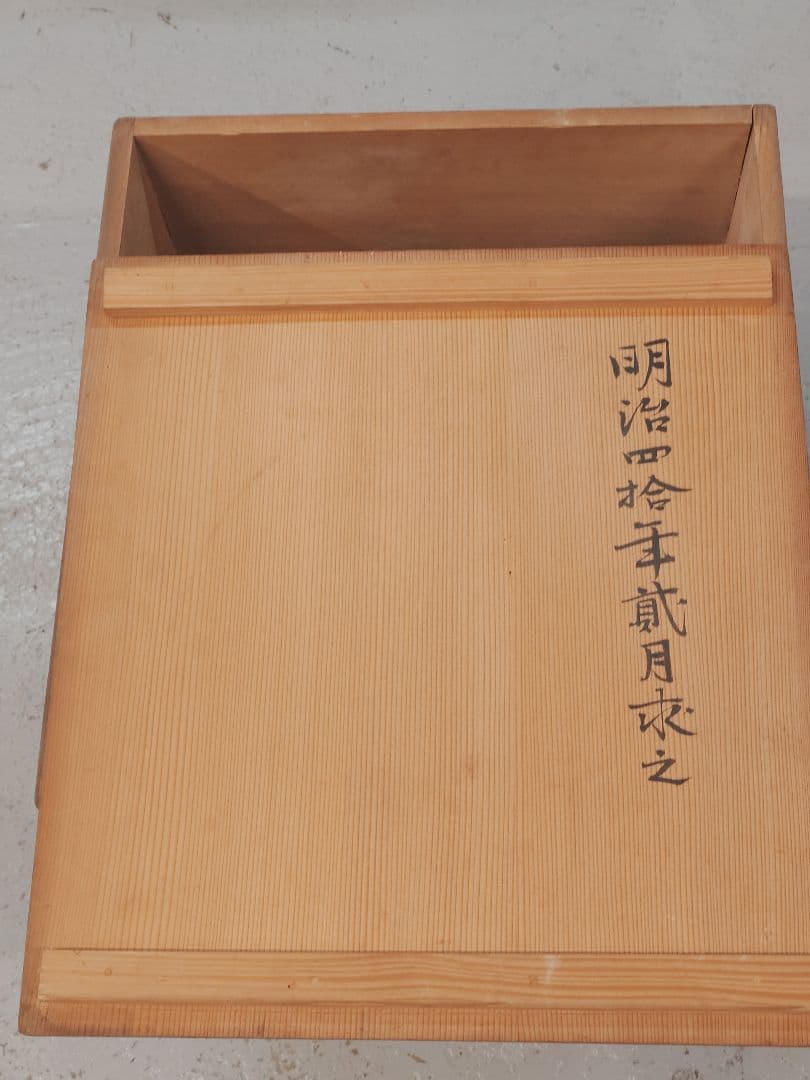 明治四拾年貳月求之